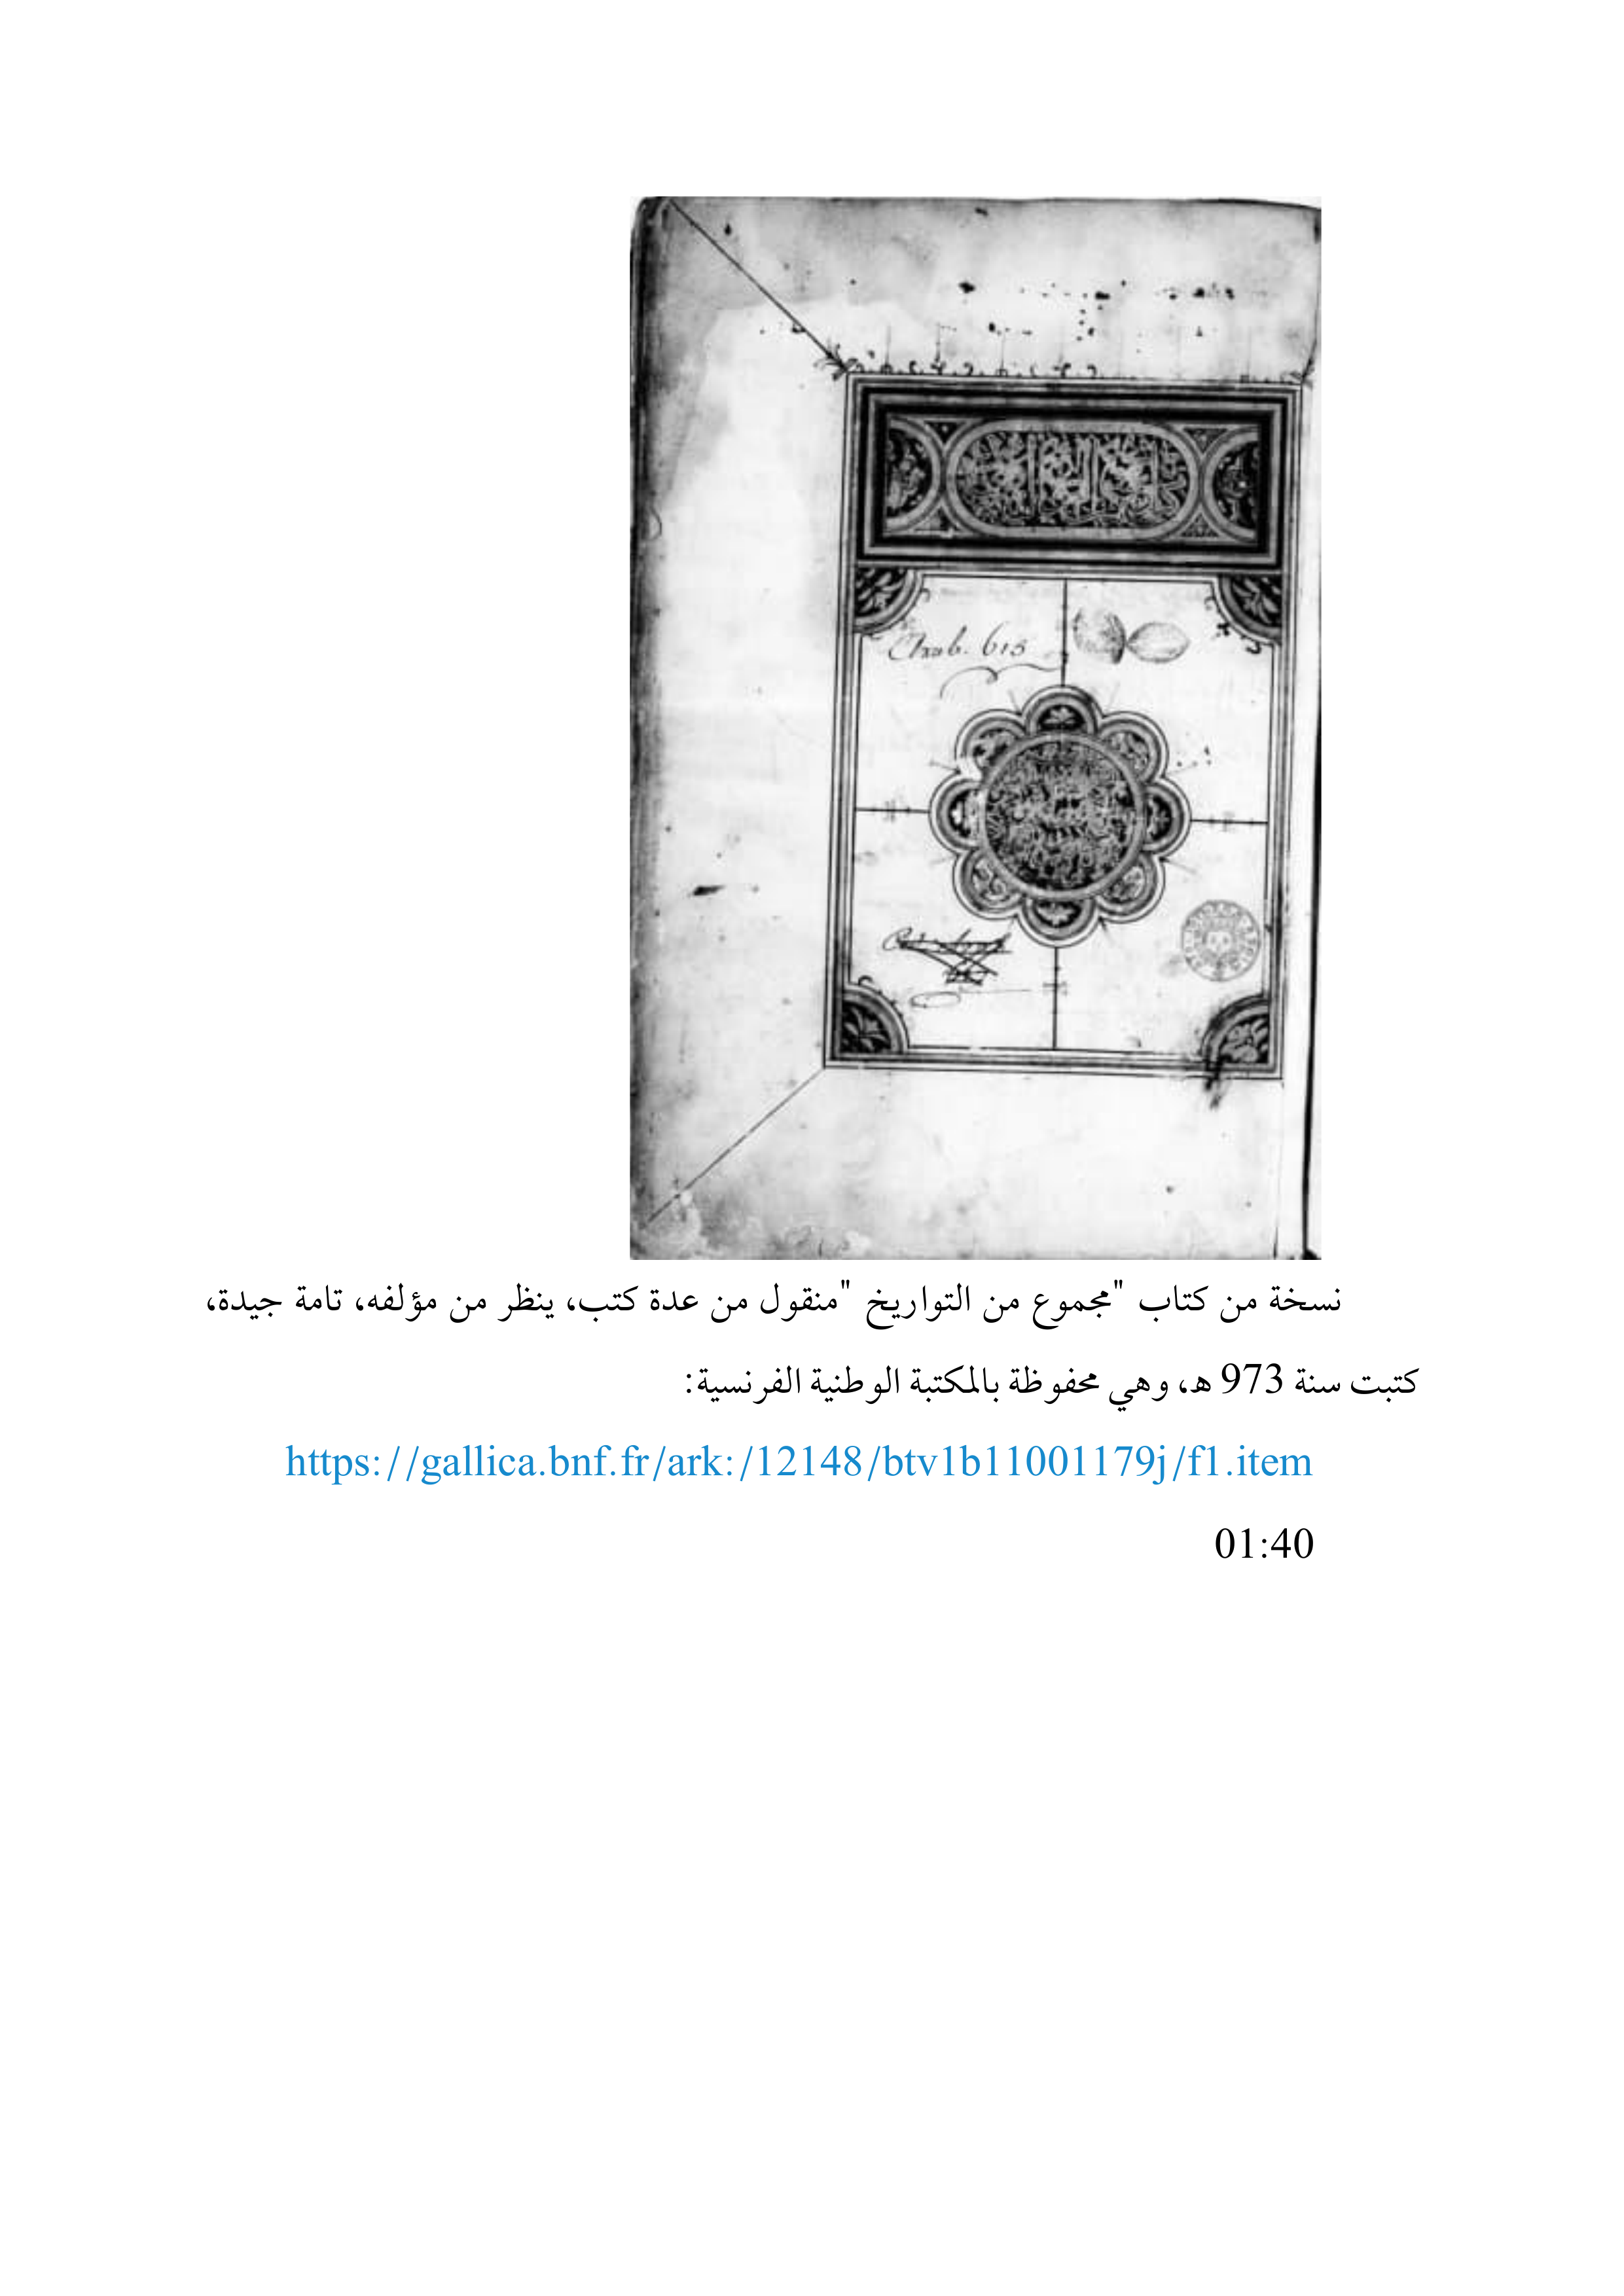 Arab. 615
نسخة من كتاب "مجموع من التواريخ "منقول من عدة كتب، ينظر من مؤلفه، تامة جيدة،
كتبت سنة 973 هـ، وهي محفوظة بالمكتبة الوطنية الفرنسية:
https://gallica.bnf.fr/ark:/12148/btv1b11001179j/f1.item
01:40